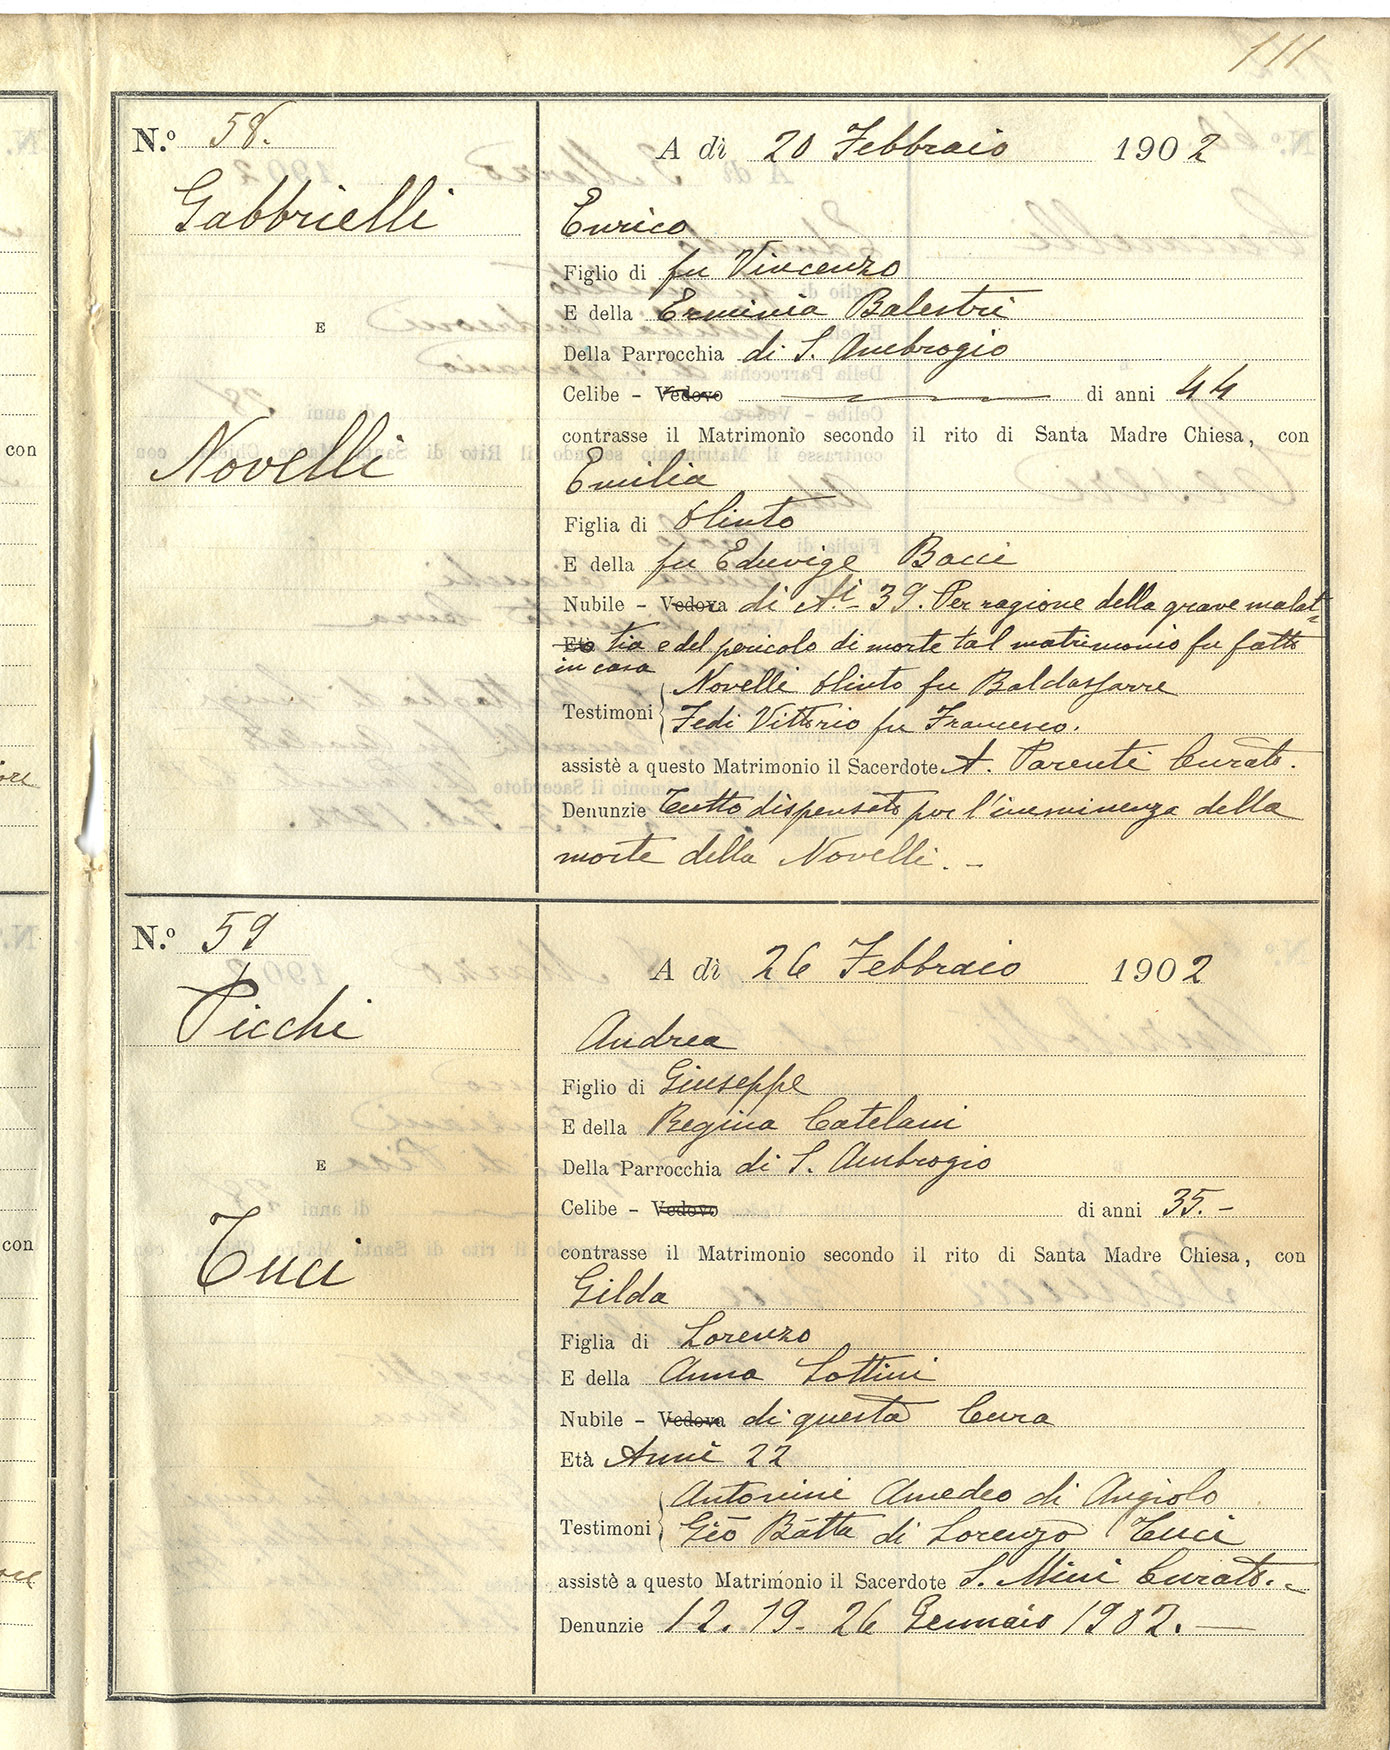 111
N.º 58.
A dì 20 Febbraio 1902
Gabbrielli
Enrico
Figlio di fu Vincenzo
E della Erminia Balestri
E
Della Parrocchia di S. Ambrogio
Celibe - Vedovo di anni 44
contrasse il Matrimonio secondo il rito di Santa Madre Chiesa, con
con
Novelli
Emilia
Figlia di Olinto
E della fu Eduvige Bacci
Nubile - Vedova di A.i 39. Per ragione della grave malat=
Età tia e del pericolo di morte tal matrimonio fu fatto
in casa
Novelli Olinto fu Baldassarre
Testimoni
Fedi Vittorio fu Francesco.
assistè a questo Matrimonio il Sacerdote A. Parenti Curato.
Denunzie Tutto dispensato per l'imminenza della
morte della Novelli. -
N.º 59
A dì 26 Febbraio 1902
Picchi
Andrea
Figlio di Giuseppe
E della Regina Catelani
E
Della Parrocchia di S. Ambrogio
Celibe - Vedovo di anni 35.-
con
contrasse il Matrimonio secondo il rito di Santa Madre Chiesa, con
Tuci
Gilda
Figlia di Lorenzo
E della Anna Lottini
Nubile - Vedova di questa Cura
Età Anni 22
Antonini Amedeo di Angiolo
Testimoni
Gio Batta di Lorenzo Tuci
assistè a questo Matrimonio il Sacerdote S. Mini Curato. =
Denunzie 12. 19. 26 Gennaio 1902. —